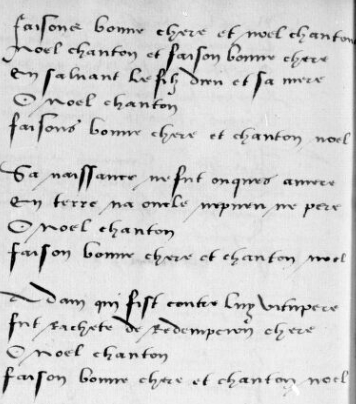 faisons bonne chere et noel chanton
Noel chanton et faison bonne chere
En saluant le filz dieu et sa mere
O Noel chanton
faisons bonne chere et chanton noel
Sa naissance ne fut onques amere
En terre na oncle nepueu ne pere
O Noel chanton
faison bonne chere et chanton noel
Adam qui fist contre luy vitupere
fut rachete de redempcion chere
O Noel chanton
faison bonne chere et chanton noel